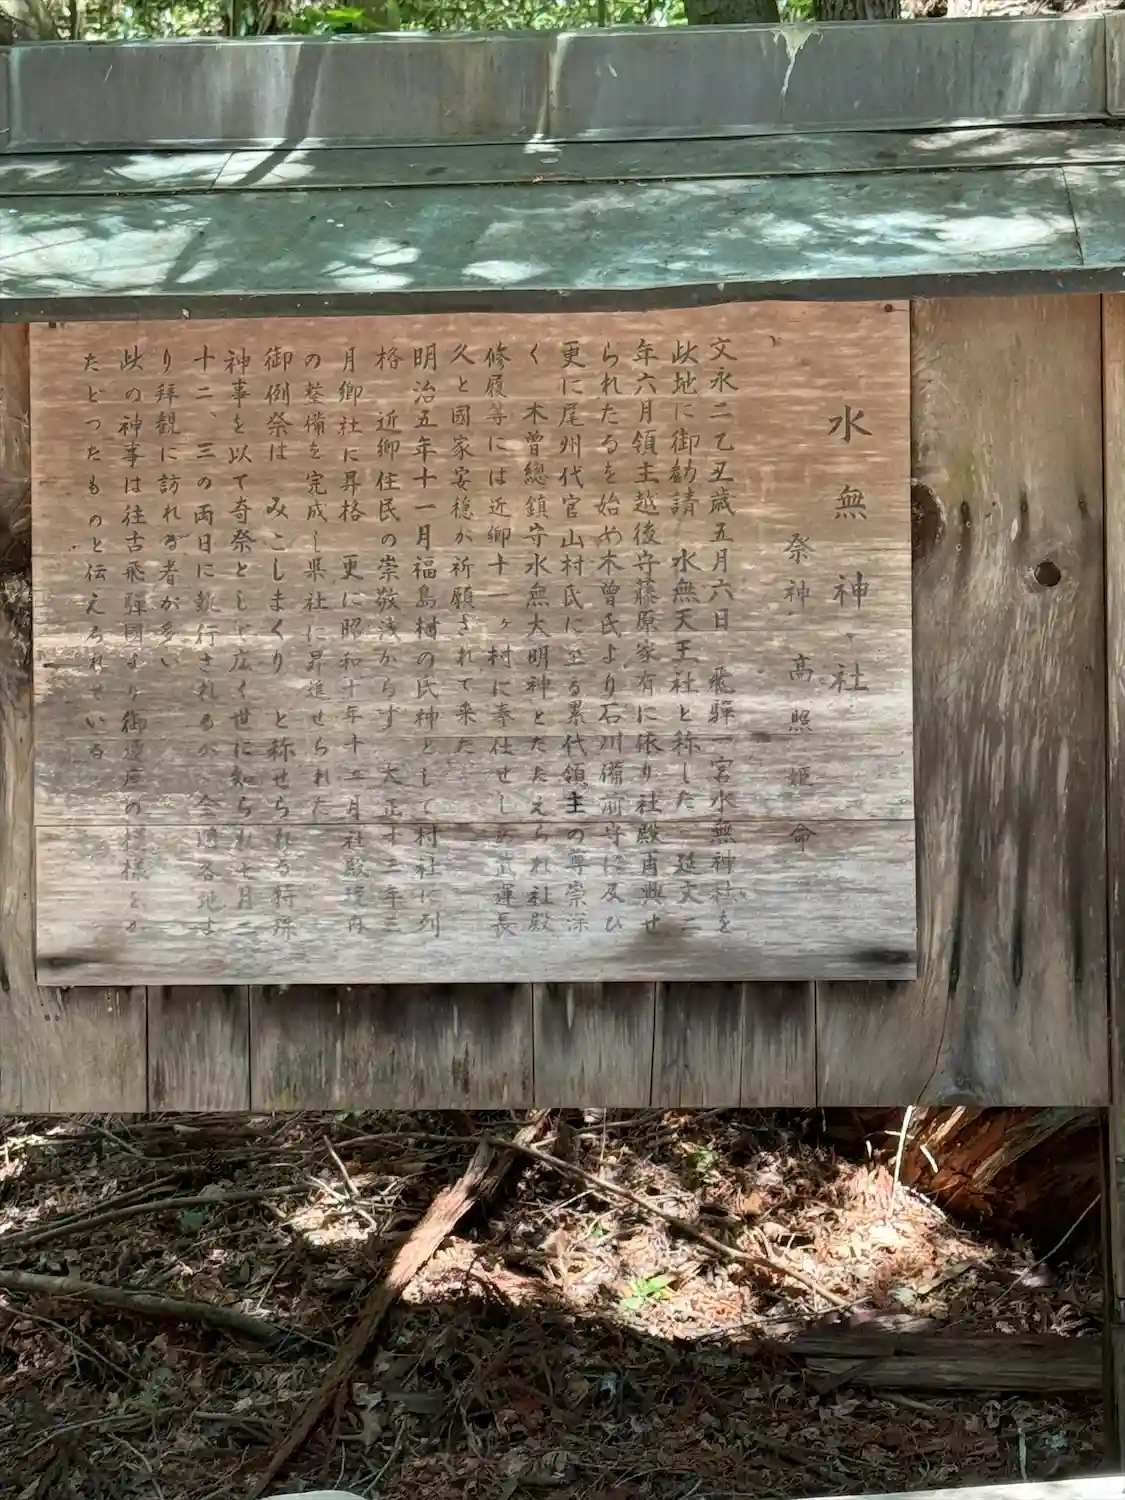 水無神社
祭神 高照姫命
文永二乙丑歳五月六日 飛騨一宮水無神社を
此地に御勧請 水無天王社と称した 延文二
年六月領主越後守藤原家有に依り社殿再興せ
られたるを始め木曽氏より石川備前守に及ひ
更に尾州代官山村氏に至る累代領主の尊崇深
く 木曽總鎮守水無大明神とたたえられ社殿
修履等には近郷十一ヶ村に奉仕せしめ武運長
久と國家安穏が祈願されて来た
明治五年十一月福島村の氏神として村社に列
格 近郷住民の崇敬浅からず 大正十二年三
月郷社に昇格 更に昭和十年十二月社殿境内
の整備を完成し県社に昇進せられた
御例祭は みこしまくり と称せられる特殊
神事を以て奇祭として広く世に知られ七月二
十二、三の両日に執行されるが 全國各地よ
り拝観に訪れる者が多い
此の神事は往古飛騨國より御遷座の模様をか
たどったものと伝えられている